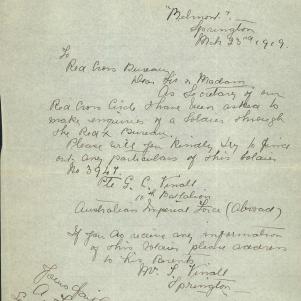 "Belmont".
Springton
Mch 23rd 1919.
To
Red Cross Bureau
Dear Sir or Madam
As Secretary of our
Red Cross Circle I have been asked to
make enquiries of a Soldier through
the Red X Bureau.
Please will you kindly try & find
out any particulars of this Soldier
No 3947.
Pte G. C. Vinall
10th Battalion
Australian Imperial Force (Abroad)
If you do receive any information
of this Soldier please address
to his parents
Mr L Vinall
Springton
Yours
A.